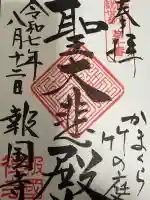 奉拝
かまくら
竹の庭
聖大悲殿
令和七年
八月十二日
報国寺